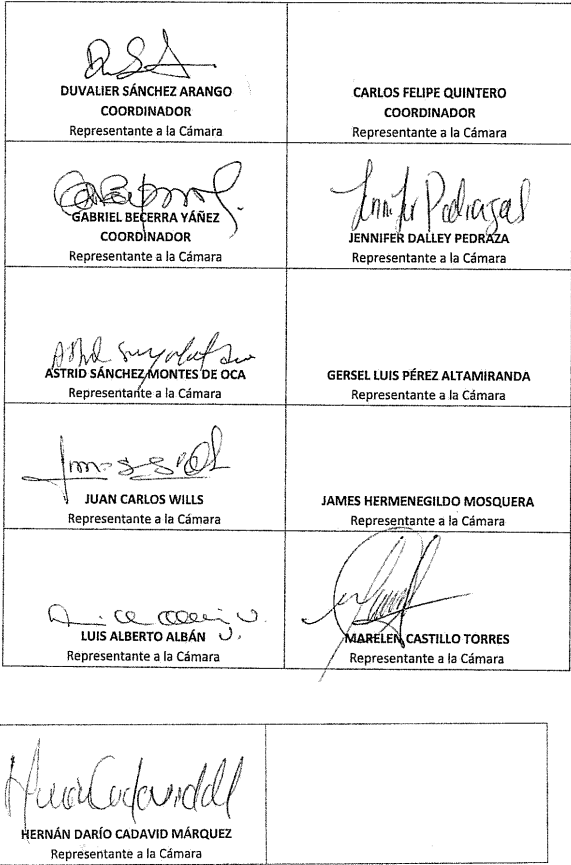 DUVALIER SÁNCHEZ ARANGO
COORDINADOR
Representante a la Cámara
CARLOS FELIPE QUINTERO
COORDINADOR
Representante a la Cámara
GABRIEL BECERRA YÁÑEZ
COORDINADOR
Representante a la Cámara
Jennifer Pedraza
JENNIFER DALLEY PEDRAZA
Representante a la Cámara
ASTRID SÁNCHEZ MONTES DE OCA
Representante a la Cámara
GERSEL LUIS PÉREZ ALTAMIRANDA
Representante a la Cámara
JUAN CARLOS WILLS
Representante a la Cámara
JAMES HERMENEGILDO MOSQUERA
Representante a la Cámara
LUIS ALBERTO ALBÁN
Representante a la Cámara
MARELEN CASTILLO TORRES
Representante a la Cámara
HERNÁN DARÍO CADAVID MÁRQUEZ
Representante a la Cámara